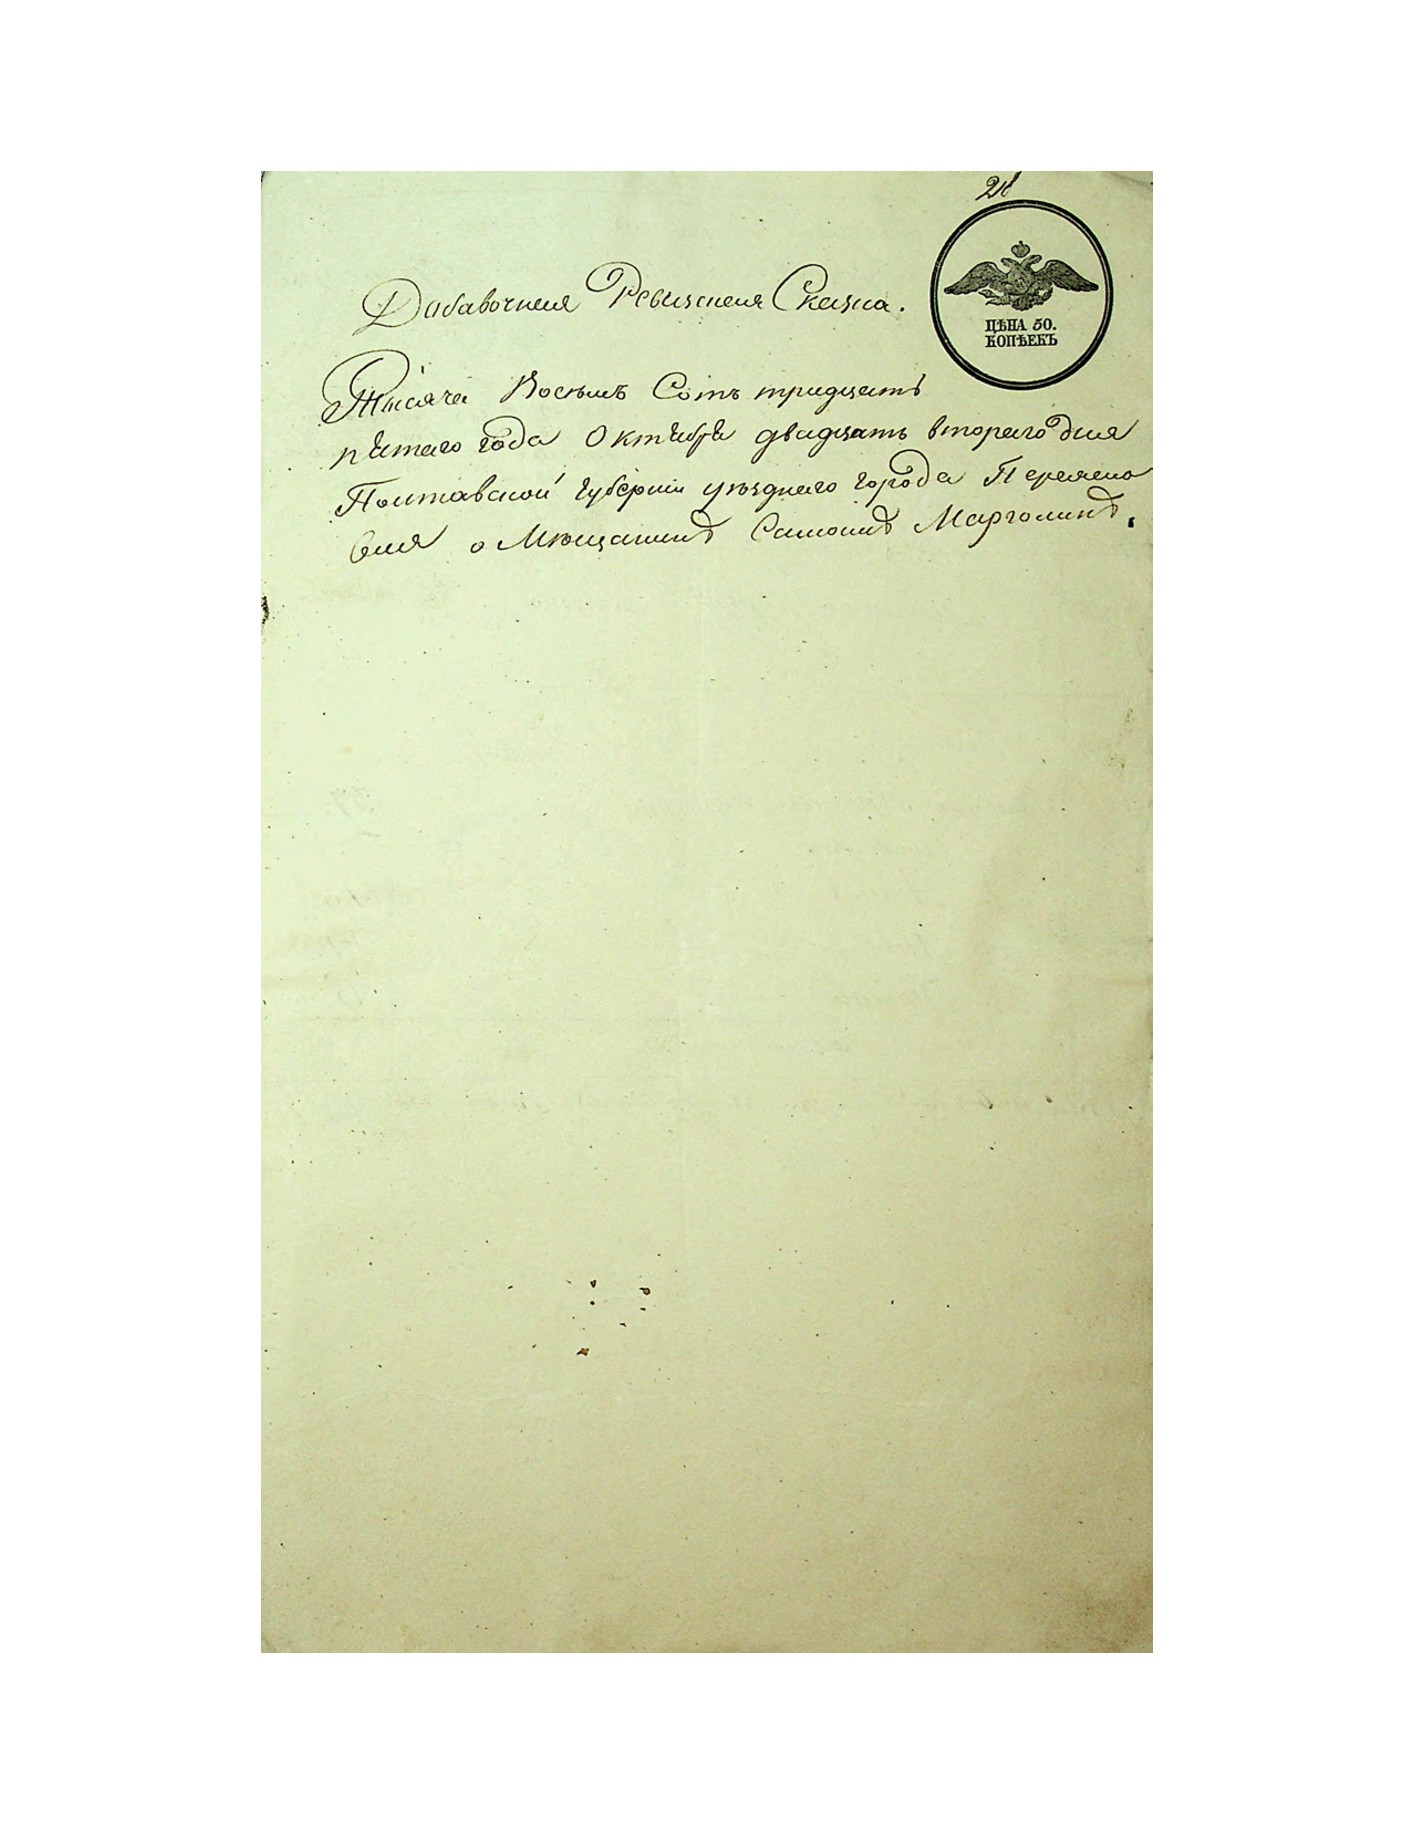 Добавочная Ревизская Сказка.
ЦѢНА 50.
КОПѢЕКЪ
Тысяча Восемъ Сотъ тридцать
пятаго года Октября двадцать втораго дня
Полтавской губерніи уѣзднаго города Переясло
вля о Мѣщанинѣ Марголинѣ.